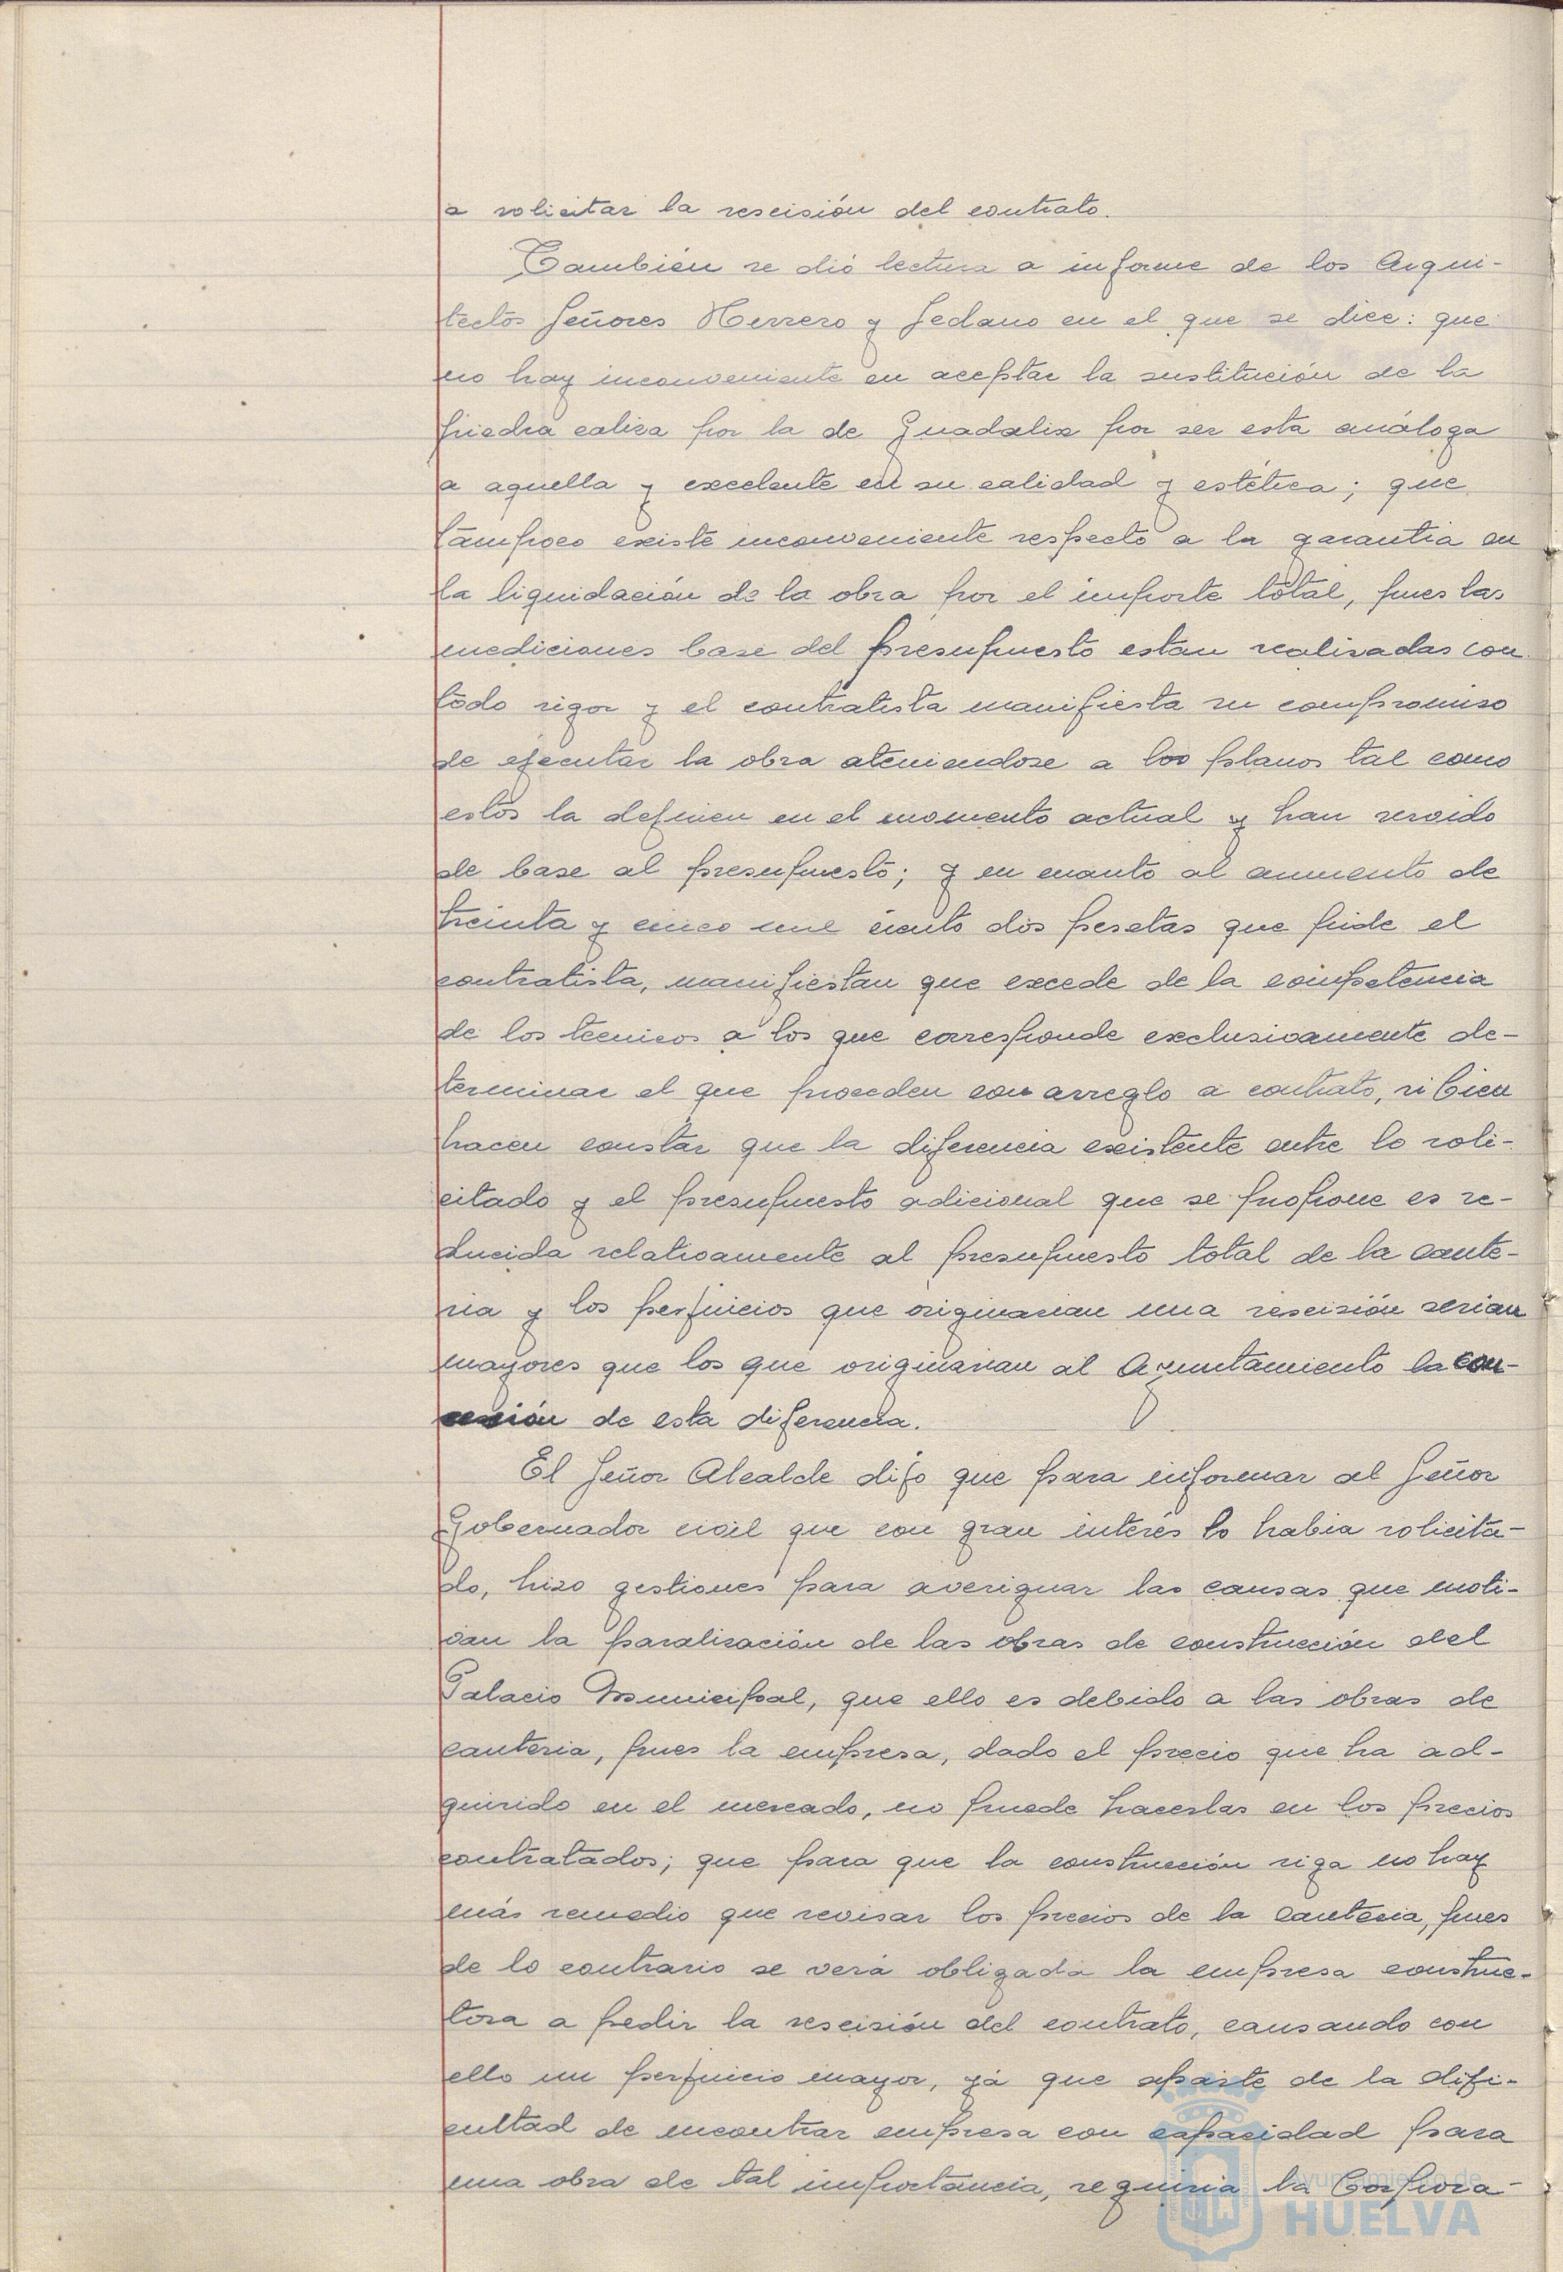 a solicitar la rescisión del contrato.
También se dió lectura a informe de los Arqui-
tectos Señores Herrero y Sedano en el que se dice: que
no hay inconveniente en aceptar la sustitución de la
piedra caliza por la de Guadalix por ser esta análoga
a aquella y excelente en su calidad y estética; que
tampoco existe inconveniente respecto a la garantia en
la liquidación de la obra por el importe total, pues las
mediciones base del presupuesto estan realizadas con
todo rigor y el contratista manifiesta su compromiso
de ejecutar la obra ateniendose a los planos tal como
estos la definen en el momento actual y han servido
de base al presupuesto; y en cuanto al aumento de
treinta y cinco mil ciento dos pesetas que pide el
contratista, manifiestan que excede de la competencia
de los tecnicos a los que corresponde exclusivamente de-
terminar el que proceden con arreglo a contrato, si bien
hacen constar que la diferencia existente entre lo soli-
citado y el presupuesto adicional que se propone es re-
ducida relativamente al presupuesto total de la cante-
ria y los perjuicios que originarian una rescisión serian
mayores que los que originarian al Ayuntamiento la con-
cesión de esta diferencia.
El Señor Alcalde dijo que para informar al Señor
Gobernador civil que con gran interés lo habia solicita-
do, hizo gestiones para averiguar las causas que moti-
van la paralización de las obras de construcción del
Palacio Municipal, que ello es debido a las obras de
canteria, pues la empresa, dado el precio que ha ad-
quirido en el mercado, no puede hacerlas en los precios
contratados; que para que la construcción siga no hay
más remedio que revisar los precios de la canteria, pues
de lo contrario se verá obligada la empresa construc-
tora a pedir la rescisión del contrato, causando con
ello un perjuicio mayor, yá que aparte de la difi-
cultad de encontrar empresa con capacidad para
una obra de tal importancia, requiria la Corpora-
Ayuntamiento de
HUELVA